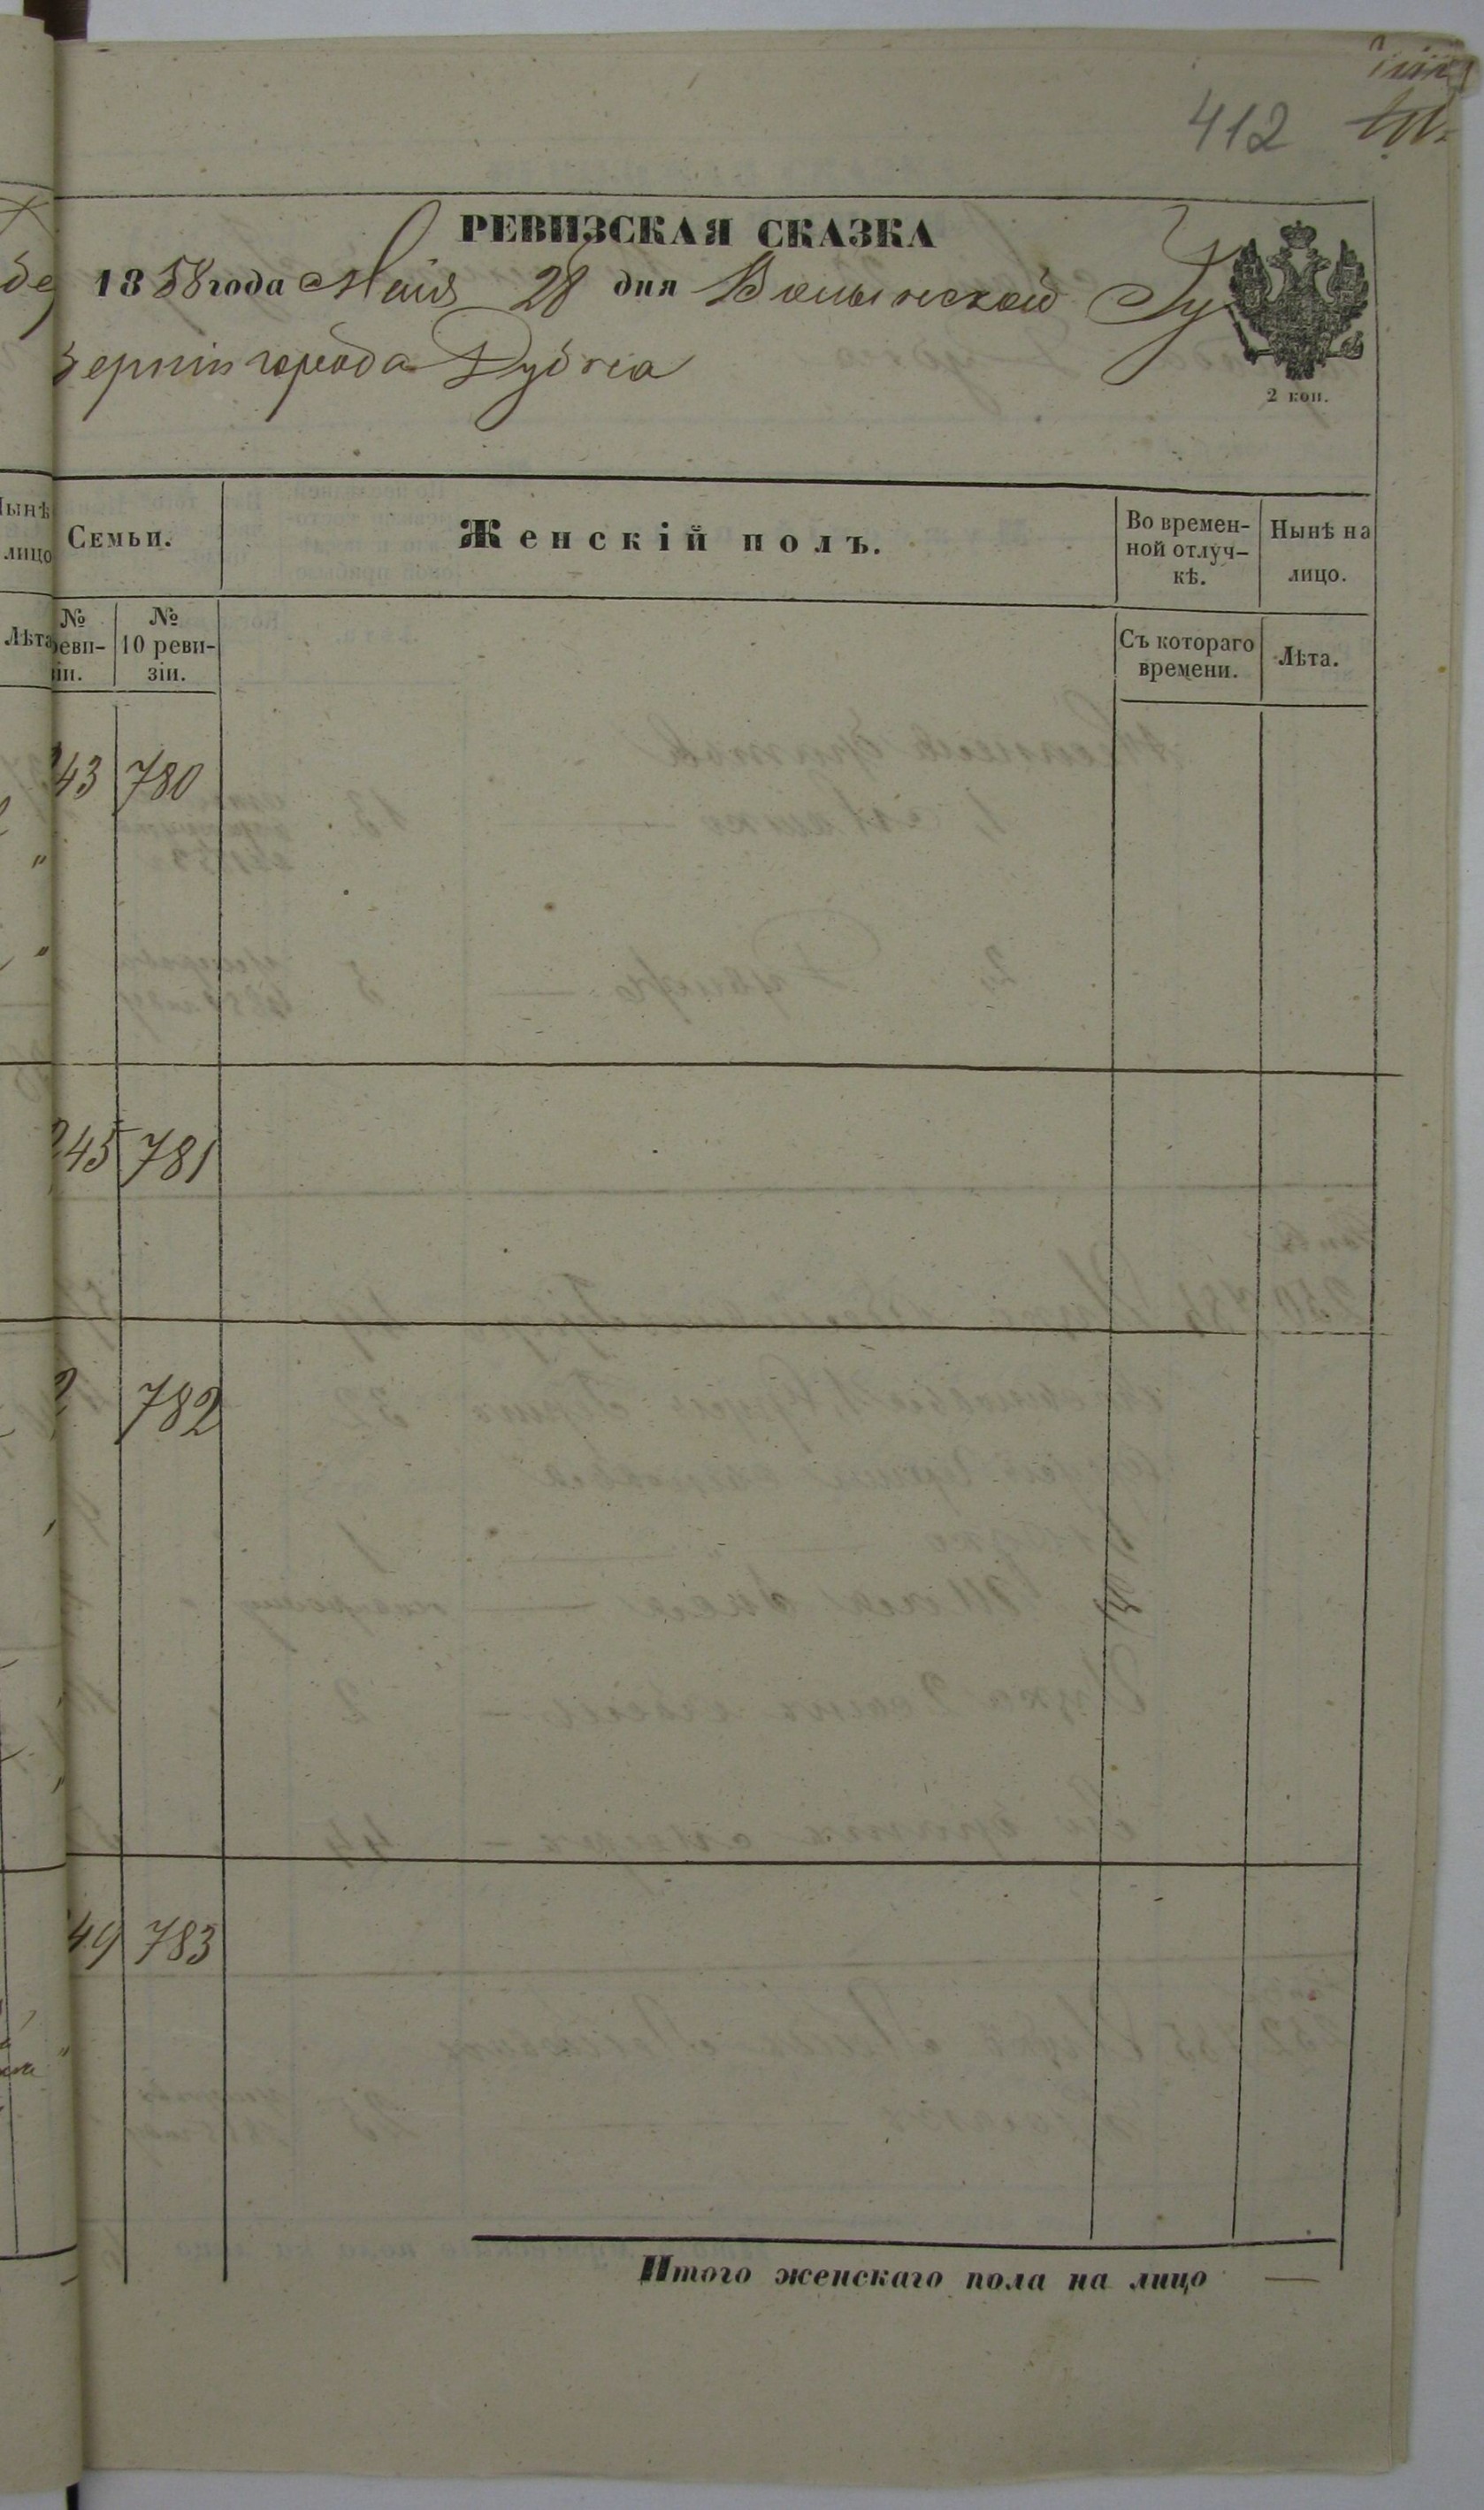 412
РЕВИЗСКАЯ СКАЗКА
1858 года Маія 28 дня Волынской Гу
берніи города Дубна
2 коп.
Нынѣ
лицо
Лѣта
Семьи.
Женскій полъ.
Во времен-
ной отлуч-
кѣ.
Нынѣ на
лицо.
№
реви-
зіи.
№
10 реви-
зіи.
Съ котораго
времени.
Лѣта.
43 780
245 781
782
49 783
Итого женскаго пола на лицо —